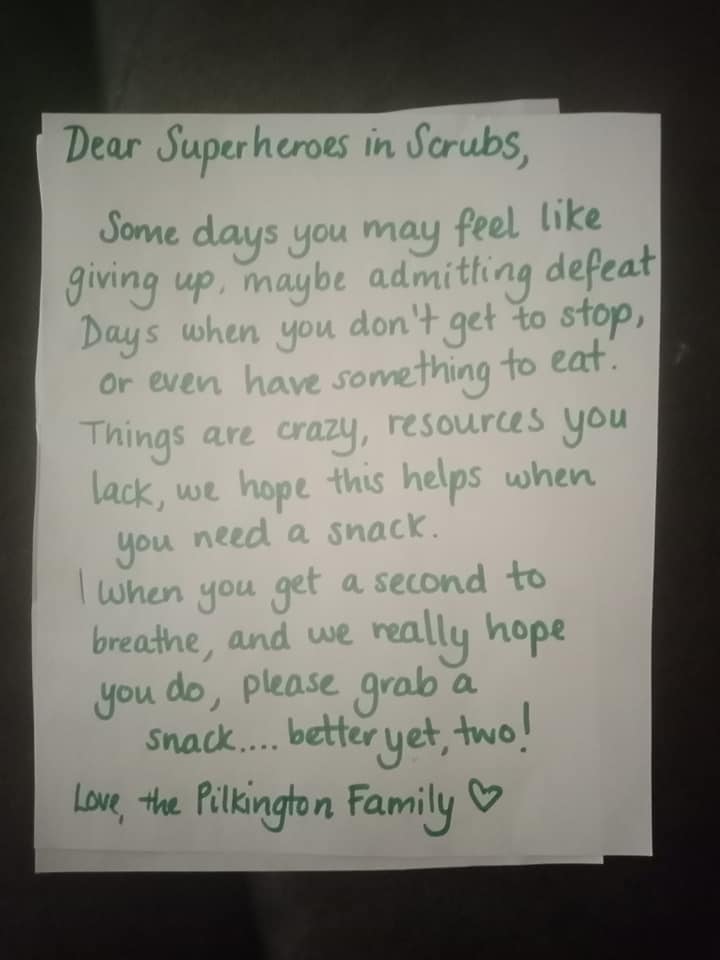 Dear Superheroes in Scrubs,
Some days you may feel like
giving up, maybe admitting defeat
Days when you don't get to stop,
or even have something to eat.
Things are crazy, resources you
lack, we hope this helps when
you need a snack.
When you get a second to
breathe, and we really hope
you do, please grab a
snack.... better yet, two!
Love, the Pilkington Family ♡